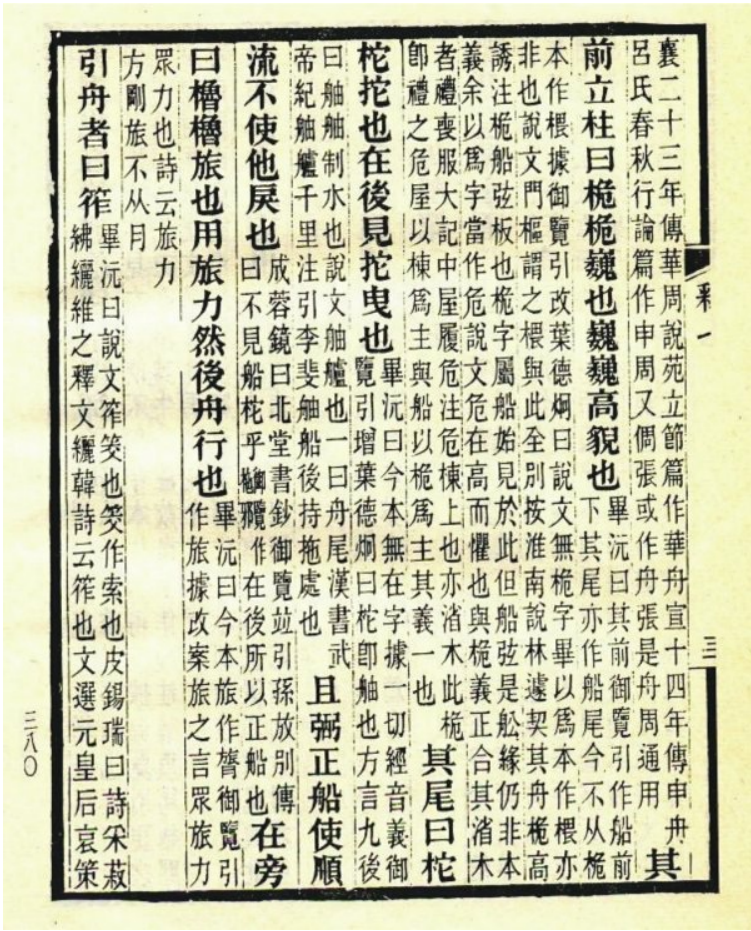 襄二十三年傳華周說苑立節篇作華舟宣十四年傳申舟
呂氏春秋行論篇作申周又倜張或作舟張是舟周通用
其
前立柱曰桅桅巍也巍巍高貌也
畢沅曰其前御覽引作船前
下其尾亦作船尾今不从桅
本作椳據御覽引改葉德炯曰說文無桅字畢以爲本作椳亦
非也說文門樞謂之椳與此全別按淮南說林遽契其舟桅高
誘注桅船弦板也桅字屬船始見於此但船弦是舩緣仍非本
義余以爲字當作危說文危在高而懼也與桅義正合其渻木
者禮喪服大記中屋履危注危棟上也亦渻木此桅
卽禮之危屋以棟爲主與船以桅爲主其義一也
其尾曰柁
柁拕也在後見拕曳也
畢沅曰今本無在字據一切經音義御
覽引增葉德炯曰柁卽舳也方言九後
曰舳舳制水也說文舳艫也一曰舟尾漢書武
帝紀舳艫千里注引李斐舳船後持拖處也
且弼正船使順
流不使他戾也
成蓉鏡曰北堂書鈔御覽竝引孫放別傳
曰不見船柁乎作在後所以正船也
在旁
曰櫓櫓旅也用旅力然後舟行也
畢沅曰今本旅作膂御覽引
作旅據改案旅之言眾旅力
眾力也詩云旅力
方剛旅不从月
引舟者曰筰
畢沅曰說文筰筊也筊作索也皮錫瑞曰詩采菽
紼纚維之釋文纚韓詩云筰也文選元皇后哀策
三
三八〇